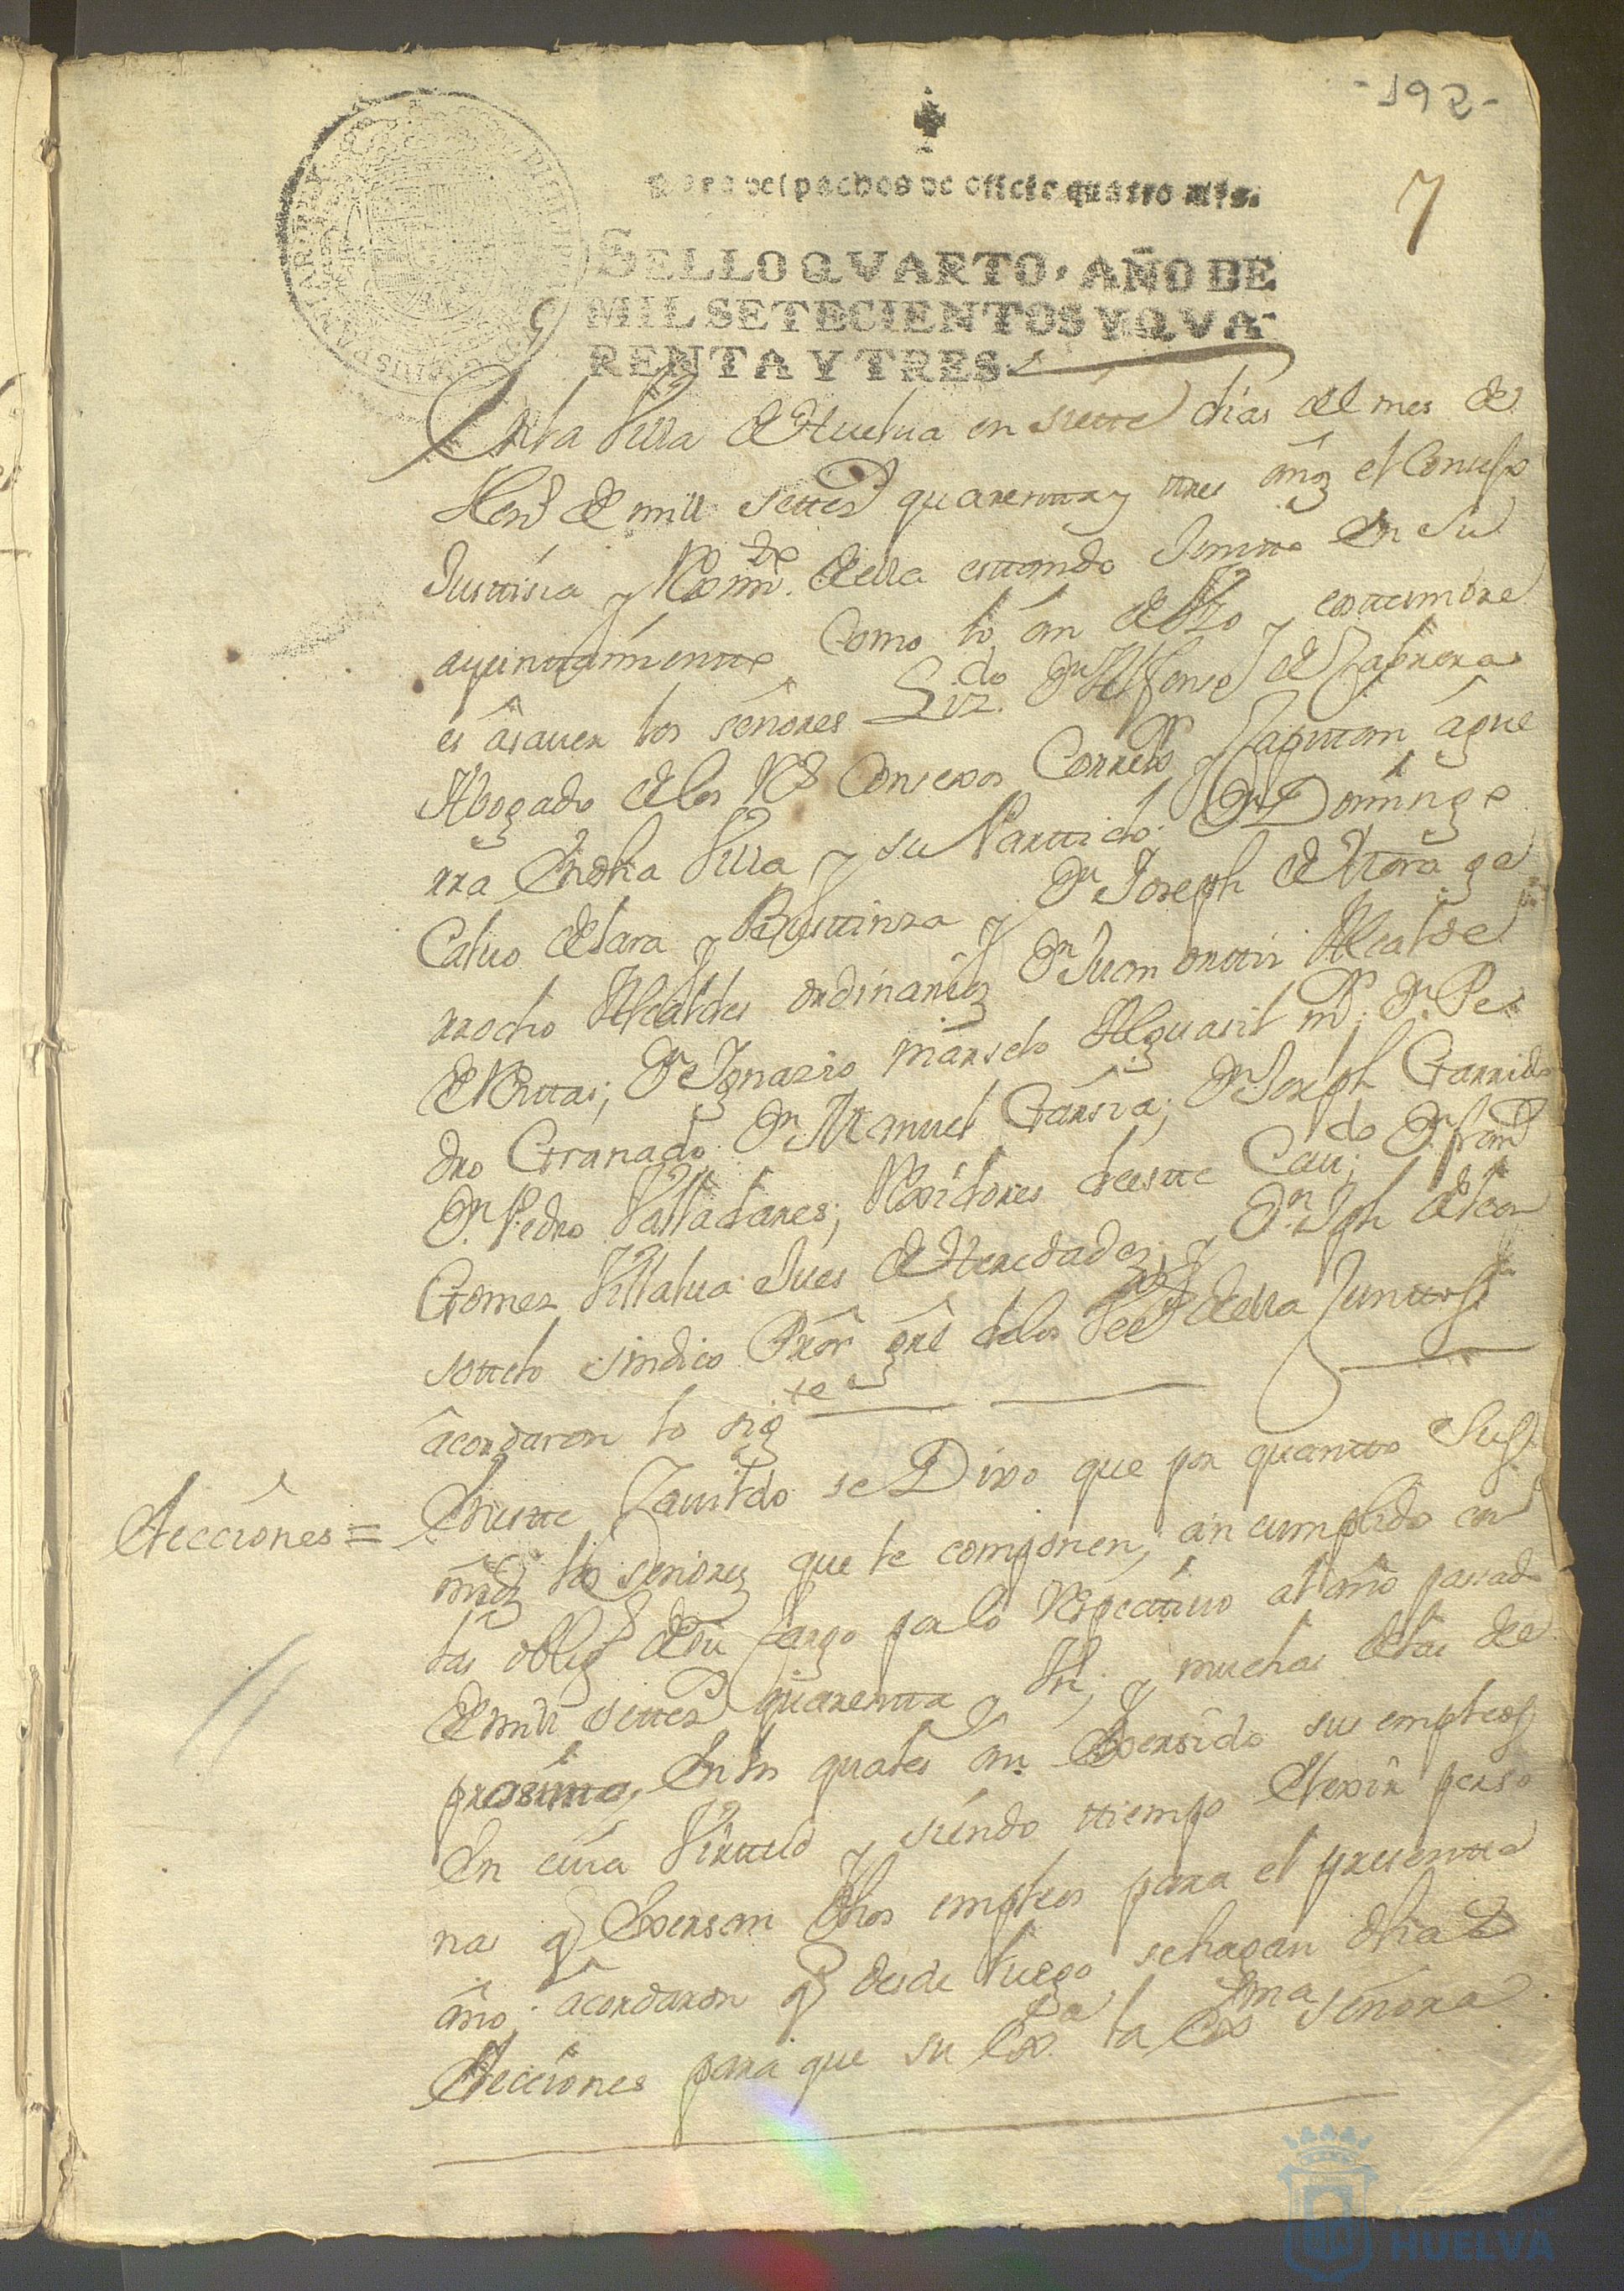 -192-
7
Para despachos de oficio quatro mrs.
SELLO QVARTO, AÑO DE
MIL SETECIENTOS Y QVA-
RENTA Y TRES.
En la Villa de Huelua en siette dias del mes de
Hen.º de mill settez.s quarentta y tres años el Consejo
Justtisia y Reximi.to della esttando Juntto en su
ayunttamientto Como lo an de Vzo y costtumbre
es âsauer los señores Liz.do Dn Alfonso de Cabrera
Abogado de los R.s Consexos Correx.or y Capitan âgue
rra En dha Villa y su Parttido; Dn Domingo
Caluo de Lara y Busttinza y Dn Joseph de Mora ga
rrocho Alcaldes ordinarios Dn Juan orttis Alcalde
de Millas; Dn Ygnazio marselo Alguasil m.or Dn Pe
dro Granado Dn Manuel Garsia; Dn Joseph Garrido
Dn Pedro Valladares; Rexidores de estte Cau.do Dn fran.co
Gomez Villalua Jues de Heredades; y Dn Jph de leon
sottelo sindico Pror. gral de los Vez.s della Junttos
âcordaron lo sig.te
Elecciones =
En estte Cauildo se Dixo que por quantto Sus
mrds los Señores que le componen, an cumplido con
las oblig.s de su Cargo por lo Respecttiuo al año pasado
de mill settez.s quarentta y
proximo, En los quales an Exersido sus empleos
En cuia Virttud y siendo ttiempo Elexir perso
nas q Exersan dhos empleos para el presentte
año; âcordaron q desde luego se hagan dhas
Elecciones para que su Ex.a la Ex.ma señora
HUELVA